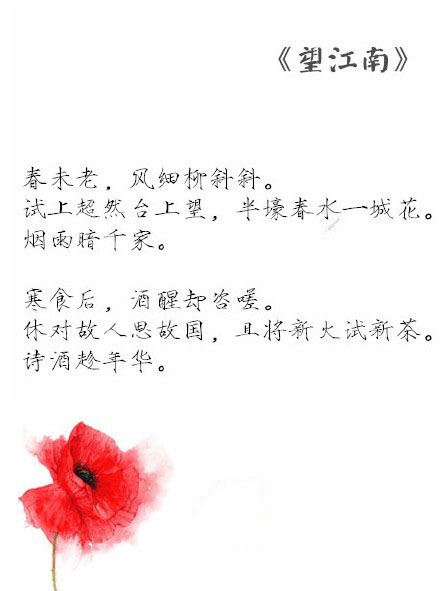 《望江南》
春未老，风细柳斜斜。
试上超然台上望，半壕春水一城花。
烟雨暗千家。
寒食后，酒醒却咨嗟。
休对故人思故国，且将新火试新茶。
诗酒趁年华。